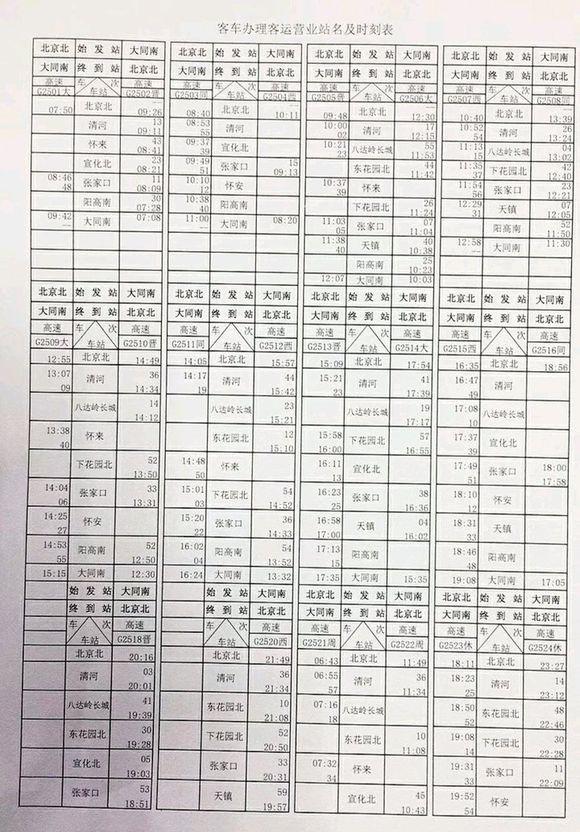 客车办理客运营业站名及时刻表
北京北 始发站 大同南
大同南 终到站 北京北
高速 车次 高速
G2501大 车站 G2502晋
07:50 北京北 09:26
清河 13 09:11
怀来 43 08:41
宣化北 23 08:21
08:46 48 张家口 11 08:09
阳高南 30 07:28
09:42 大同南 07:08
北京北 始发站 大同南
大同南 终到站 北京北
高速 车次 高速
G2503同 车站 G2504西
08:40 北京北 10:11
08:53 55 清河
09:37 39 宣化北
09:49 51 张家口 15 09:13
10:10 12 怀安
10:38 40 阳高南
11:00 大同南 08:20
北京北 始发站 大同南
大同南 终到站 北京北
高速 车次 高速
G2505晋 车站 G2506大
09:48 北京北 12:30
10:00 02 清河 17 12:15
10:21 23 八达岭长城 55 11:53
东花园北 44 11:42
10:37 39 怀来
下花园北 26 11:24
11:03 05 张家口 07 11:04
11:38 40 天镇 40 10:38
阳高南 25 10:23
12:07 大同南 10:03
北京北 始发站 大同南
大同南 终到站 北京北
高速 车次 高速
G2507西 车站 G2508同
10:40 北京北 13:39
10:52 54 清河 26 13:24
11:13 15 八达岭长城 04 13:02
11:35 37 下花园北 42 12:40
11:54 56 张家口 23 12:21
12:29 31 天镇 07 12:05
阳高南 52 11:50
12:58 大同南 11:30
北京北 始发站 大同南
大同南 终到站 北京北
高速 车次 高速
G2509大 车站 G2510晋
12:55 北京北 14:49
13:07 09 清河 36 14:34
八达岭长城 14 14:12
13:38 40 怀来
下花园北 52 13:50
14:04 06 张家口 33 13:31
14:25 27 怀安
14:53 55 阳高南 52 12:50
15:15 大同南 12:30
北京北 始发站 大同南
大同南 终到站 北京北
高速 车次 高速
G2511同 车站 G2512西
14:05 北京北 15:57
14:17 19 清河 44 15:42
八达岭长城 23 15:21
东花园北 12 15:10
14:48 50 怀来
15:01 03 下花园北 54 14:52
15:20 22 张家口 36 14:33
16:02 04 阳高南 54 13:52
16:24 大同南 13:32
北京北 始发站 大同南
大同南 终到站 北京北
高速 车次 高速
G2513晋 车站 G2514大
15:09 北京北 17:54
15:21 23 清河 41 17:39
八达岭长城 19 17:17
15:58 16:00 下花园北 57 16:55
16:11 13 宣化北
16:23 25 张家口 38 16:36
16:58 17:00 天镇 04 16:02
17:13 15 阳高南
17:35 大同南 15:35
北京北 始发站 大同南
大同南 终到站 北京北
高速 车次 高速
G2515西 车站 G2516同
16:35 北京北 18:56
16:47 49 清河
17:08 10 八达岭长城
17:37 39 宣化北
17:49 51 张家口 18:00 17:58
18:10 12 怀安
18:31 33 天镇
18:46 48 阳高南
19:08 大同南 17:05
始发站 大同南
终到站 北京北
车次 高速
车站 G2518晋
北京北 20:16
清河 03 20:01
八达岭长城 41 19:39
东花园北 30 19:28
宣化北 05 19:03
张家口 53 18:51
始发站 大同南
终到站 北京北
车次 高速
车站 G2520西
北京北 21:49
清河 36 21:34
东花园北 10 21:08
下花园北 52 20:50
张家口 33 20:31
天镇 59 19:57
北京北 始发站 大同南
大同南 终到站 北京北
高速 车次 高速
G2521周 车站 G2522周
06:43 北京北 11:49
06:55 57 清河 36 11:34
07:16 18 八达岭长城
东花园北 10 11:08
07:32 34 怀来
宣化北 45 10:43
北京北 始发站 大同南
大同南 终到站 北京北
高速 车次 高速
G2523休 车站 G2524休
18:11 北京北 23:27
18:23 25 清河 14 23:12
18:50 52 东花园北 48 22:46
19:08 14 下花园北 30 22:28
19:31 33 张家口 11 22:09
19:52 54 怀安